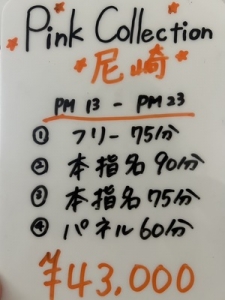 Pink Collection
尼崎
PM 13 - PM 23
① フリー 75分
② 本指名 90分
③ 本指名 75分
④ パネル 60分
¥43,000